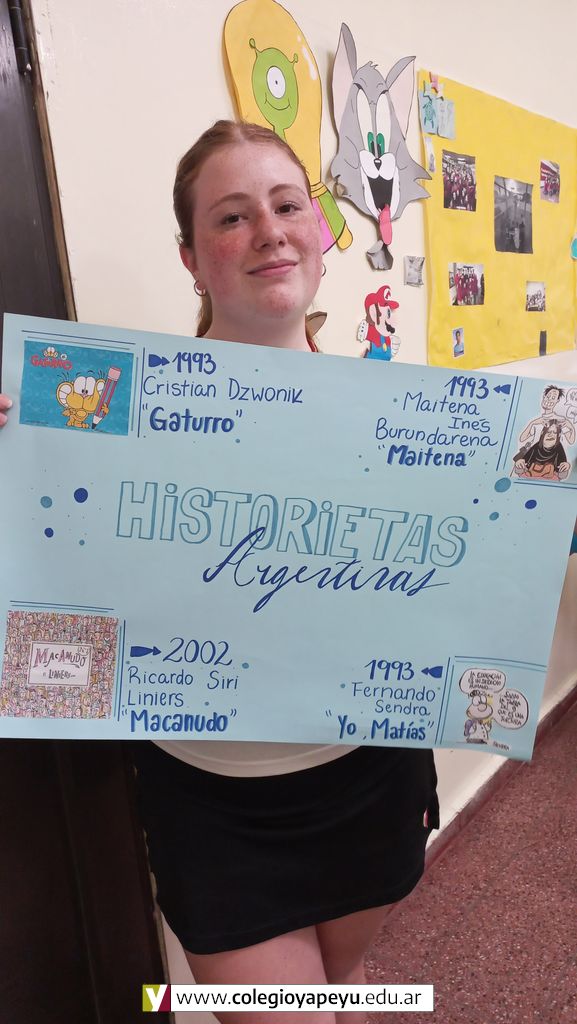 GATURRO
1993
Cristian Dzwonik
"Gaturro"
1993
Maitena
Inés
Burundarena
"Maitena"
HiSTORiETAS
Argentinas
MACANUDO
LINIERS
2002
Ricardo Siri
Liniers
"Macanudo"
1993
Fernando
Sendra
"Yo, Matías"
LA EDUCACIÓN
ES UN DERECHO
HUMANO...
QUE ES UNA
SENDRA
Y www.colegioyapeyu.edu.ar